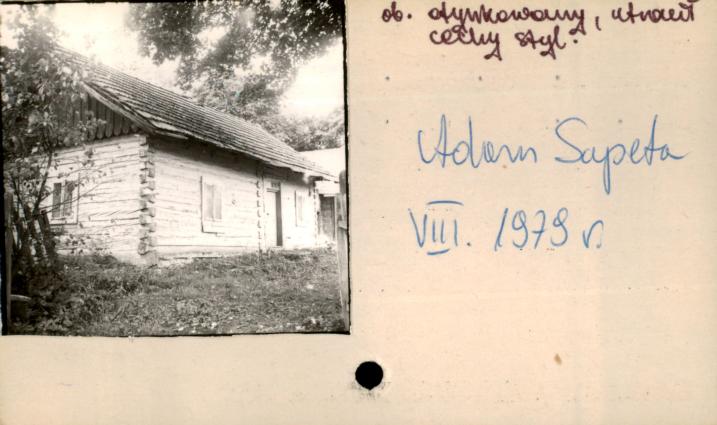 ob. otynkowany, utracił
cechy styl.
Adam Sapeta
VIII. 1979 r.